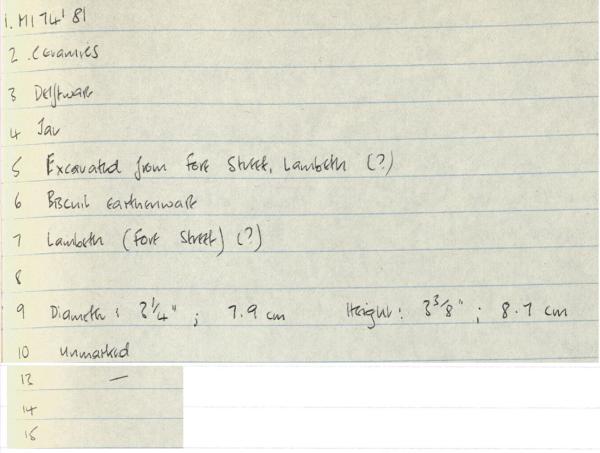 1. M174'81
2 .Ceramics
3 Delftware
4 Jar
5 Excavated from Fore Street, Lambeth (?)
6 Biscuit earthenware
7 Lambeth (Fore Street) (?)
8
9 Diameter: 3 1/4" ; 7.9 cm Height: 3 3/8" ; 8.7 cm
10 unmarked
13 —
14
15